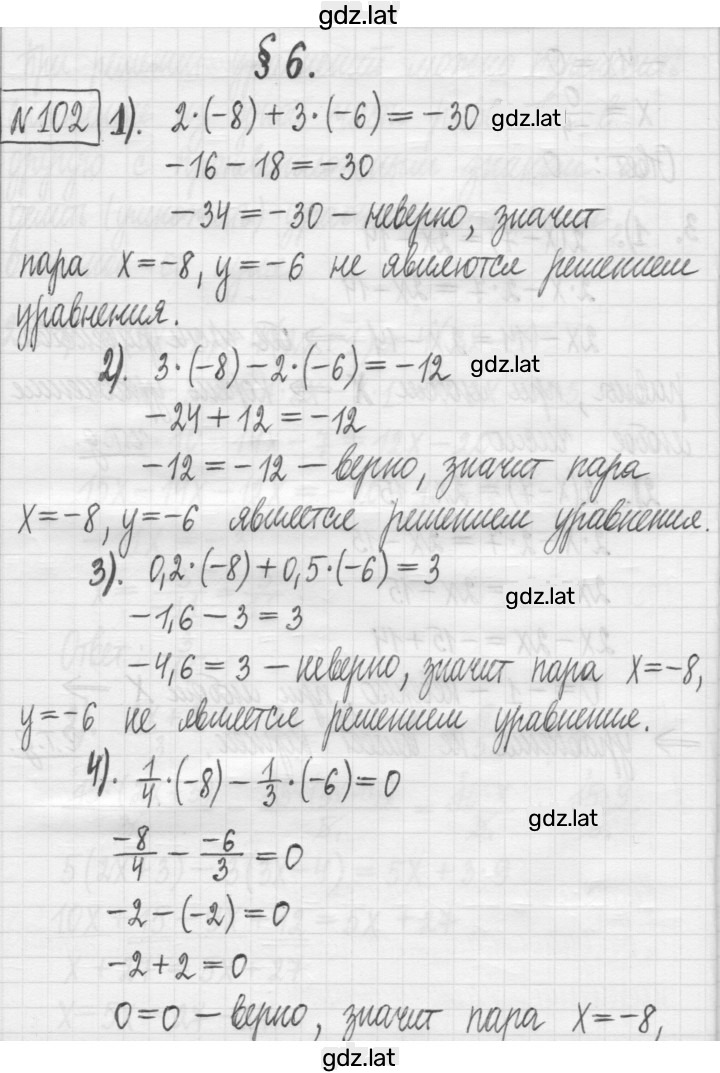 gdz.lat
§ 6.
№102 1). 2·(-8)+3·(-6)=-30 gdz.lat
-16-18=-30
-34=-30 — неверно, значит
пара x=-8, y=-6 не являются решением
уравнения.
2). 3·(-8)-2·(-6)=-12 gdz.lat
-24+12=-12
-12=-12 — верно, значит пара
x=-8, y=-6 является решением уравнения.
3). 0,2·(-8)+0,5·(-6)=3
gdz.lat
-1,6-3=3
-4,6=3 — неверно, значит пара x=-8,
y=-6 не является решением уравнения.
4). 1/4·(-8)-1/3·(-6)=0
gdz.lat
-8/4 - -6/3 =0
-2-(-2)=0
-2+2=0
0=0 — верно, значит пара x=-8,
gdz.lat